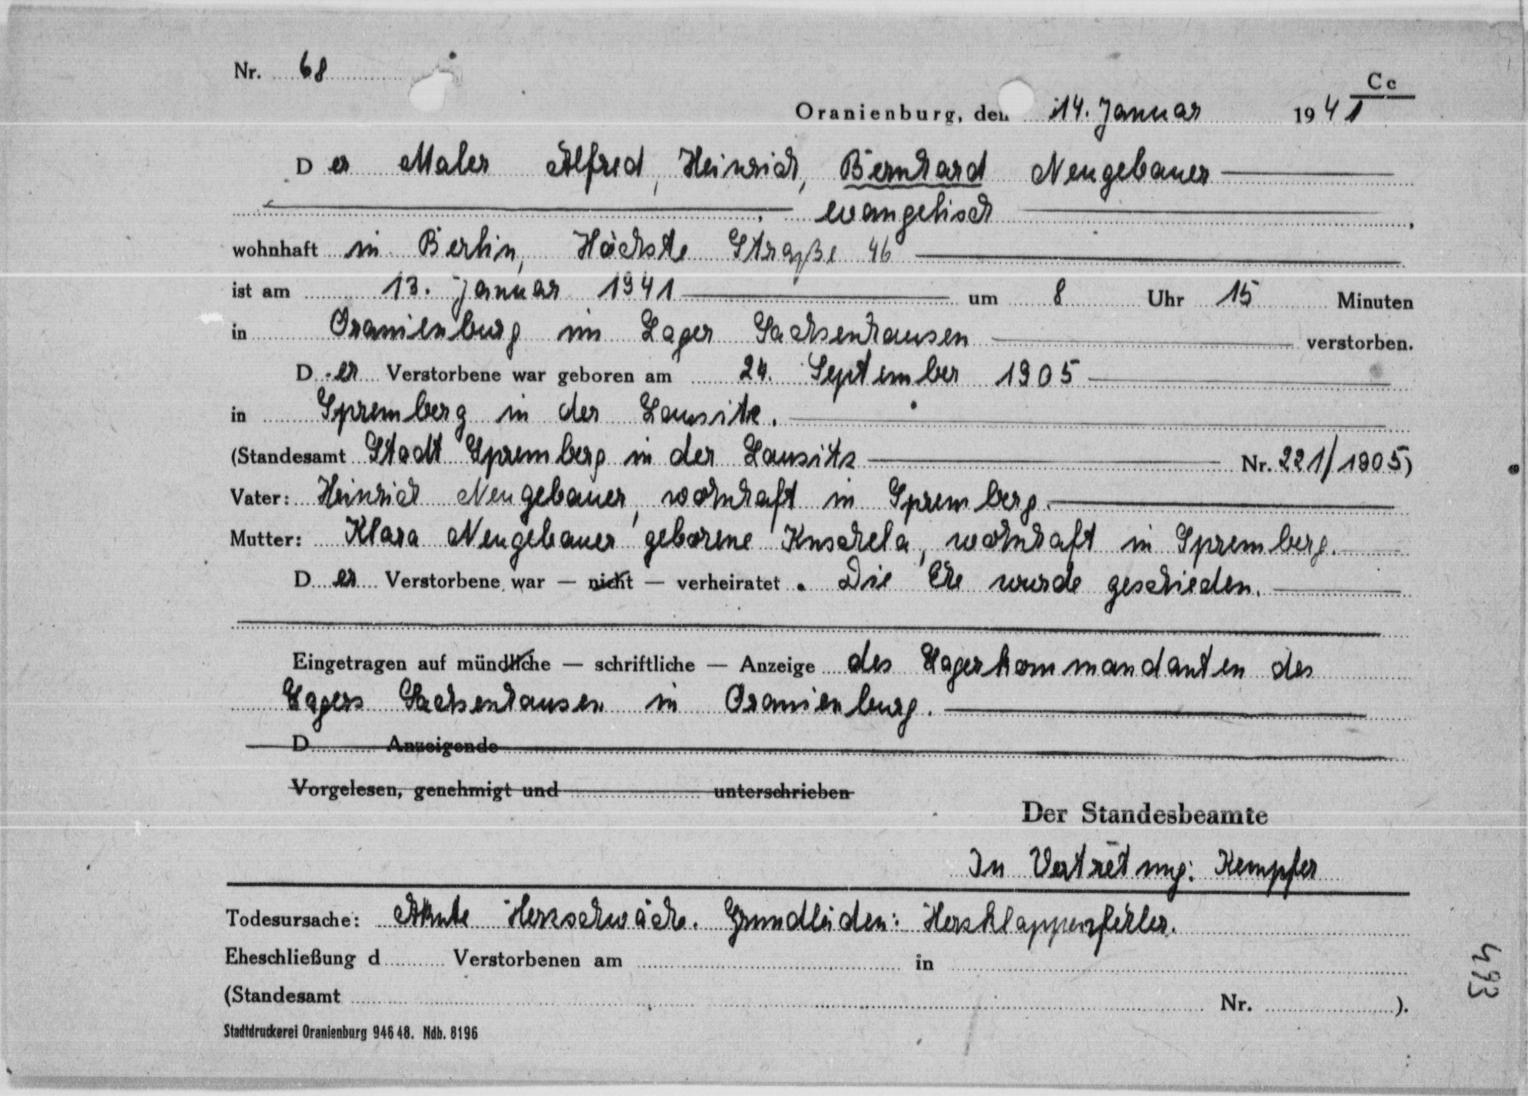 Nr. 68
Cc
Oranienburg, den 14. Januar 1941
Der Maler Alfred, Heinrich, Bernhard Neugebauer
, evangelisch ,
wohnhaft in Berlin, Höchste Straße 46
ist am 13. Januar 1941 um 8 Uhr 15 Minuten
in Oranienburg im Lager Sachsenhausen verstorben.
Der Verstorbene war geboren am 24. September 1905
in Spremberg in der Lausitz.
(Standesamt Stadt Spremberg in der Lausitz Nr. 221/1905)
Vater: Heinrich Neugebauer, wohnhaft in Spremberg.
Mutter: Klara Neugebauer geborene Kuschela, wohnhaft in Spremberg.
Der Verstorbene war — nicht — verheiratet. Die Ehe wurde geschieden.
Eingetragen auf mündliche — schriftliche — Anzeige des Lagerkommandanten des
Lagers Sachsenhausen in Oranienburg.
D Anzeigende
Vorgelesen, genehmigt und unterschrieben
Der Standesbeamte
In Vertretung: Kempfer
Todesursache: Akute Herzschwäche. Grundleiden: Herzklappenfehler.
Eheschließung d Verstorbenen am in
(Standesamt Nr. ).
Stadtdruckerei Oranienburg 946 48. Ndh. 8196
493